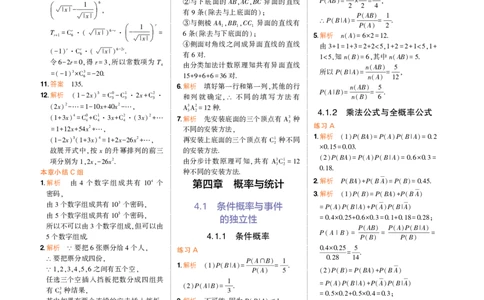 (√|x| - 1/√|x|)⁶,
T_{r+1}=C₆ʳ·(√|x|)^{6-r}·(-1/√|x|)^r=
(-1)^r·C₆ʳ·(√|x|)^{6-2r},
令6-2r=0,得r=3,所以常数项为T₄
=(-1)³C₆³=-20.
11.答案 135.
12.解析 (1-2x)⁵=C₅⁰-C₅¹·2x+C₅²·
(2x)²-…=1-10x+40x²-…,
(1+3x)⁴=C₄⁰+C₄¹·3x+C₄²·(3x)²+…
=1+12x+54x²+…,
(1-2x)⁵(1+3x)⁴=1+2x-26x²+…,
故展开式中,按x的升幂排列的前三
项分别为1,2x,-26x².
本章小结C组
1.解析 由4个数字组成共有10⁴个
密码,
由3个数字组成共有10³个密码,
由5个数字组成共有10⁵个密码,
所以不可以由3个数字组成,但可以由
5个数字组成.
2.解析 ∵要把6张票分给4个人,
∴要把票分成四份,
∵1,2,3,4,5,6之间有五个空,
任选三个空插入挡板把数分成四组共
有C₅³种结果,
②与下底面的AB,AC,BC异面的直线
有9条(除去与上底面的);
③与侧棱AA₁,BB₁,CC₁异面的直线有
6条(除去与下底面的);
④侧面对角线之间成异面直线的直线
有6对.
由分类加法计数原理知共有异面直线
15+9+6+6=36对.
6.解析 填写第一行和第一列,其他的行
和列就确定,∴不同的填写方法有
A₃³A₂²=12种.
7.解析 先安装底面的三个顶点有A₄³种
不同的安装方法,
再安装上底面的三个顶点有C₂¹种不同
安装方法.
由分步计数原理可知,共有A₄³C₂¹=12
种不同的安装方法.
第四章 概率与统计
4.1 条件概率与事件
的独立性
4.1.1 条件概率
练习A
1.解析 (1)P(B|A)=P(A∩B)/P(A)=1/5.
(2)P(A|B)=1/3.
P(AB)=
∴P(B|A)=P(AB)/P(A)=1/2.
5.解析 n(A)=6×2=12.
由3+1=1+3=2+2<5,1+2=2+1<5,1+
1<5,知n(B)=6,其中n(AB)=5.
所以P(B|A)=n(AB)/n(A)=5/12,
P(A|B)=n(AB)/n(B)=5/6.
4.1.2 乘法公式与全概率公式
练习A
1.解析 (1)P(BA)=P(A)P(B|A)=0.2
×0.15=0.03.
(2)P(BA)=P(A)P(B|A)=0.6×0.3=
0.18.
2.解析 P(BA)+P(BĀ)=P(B)=0.45.
3.解析 (1)P(B)=P(BA)+P(BĀ)
=P(A)P(B|A)+P(Ā)P(B|Ā)
=0.4×0.25+0.6×0.3=0.1+0.18=0.28;
P(A|B)=P(AB)/P(B)=P(A)P(B|A)/P(B)=
0.4×0.25/0.28=5/14.
(2)P(B)=P(BA)+P(BĀ)
=P(A)P(B|A)+P(Ā)P(B|Ā)
=0.5×0.2+0.5×0.4=0.3;